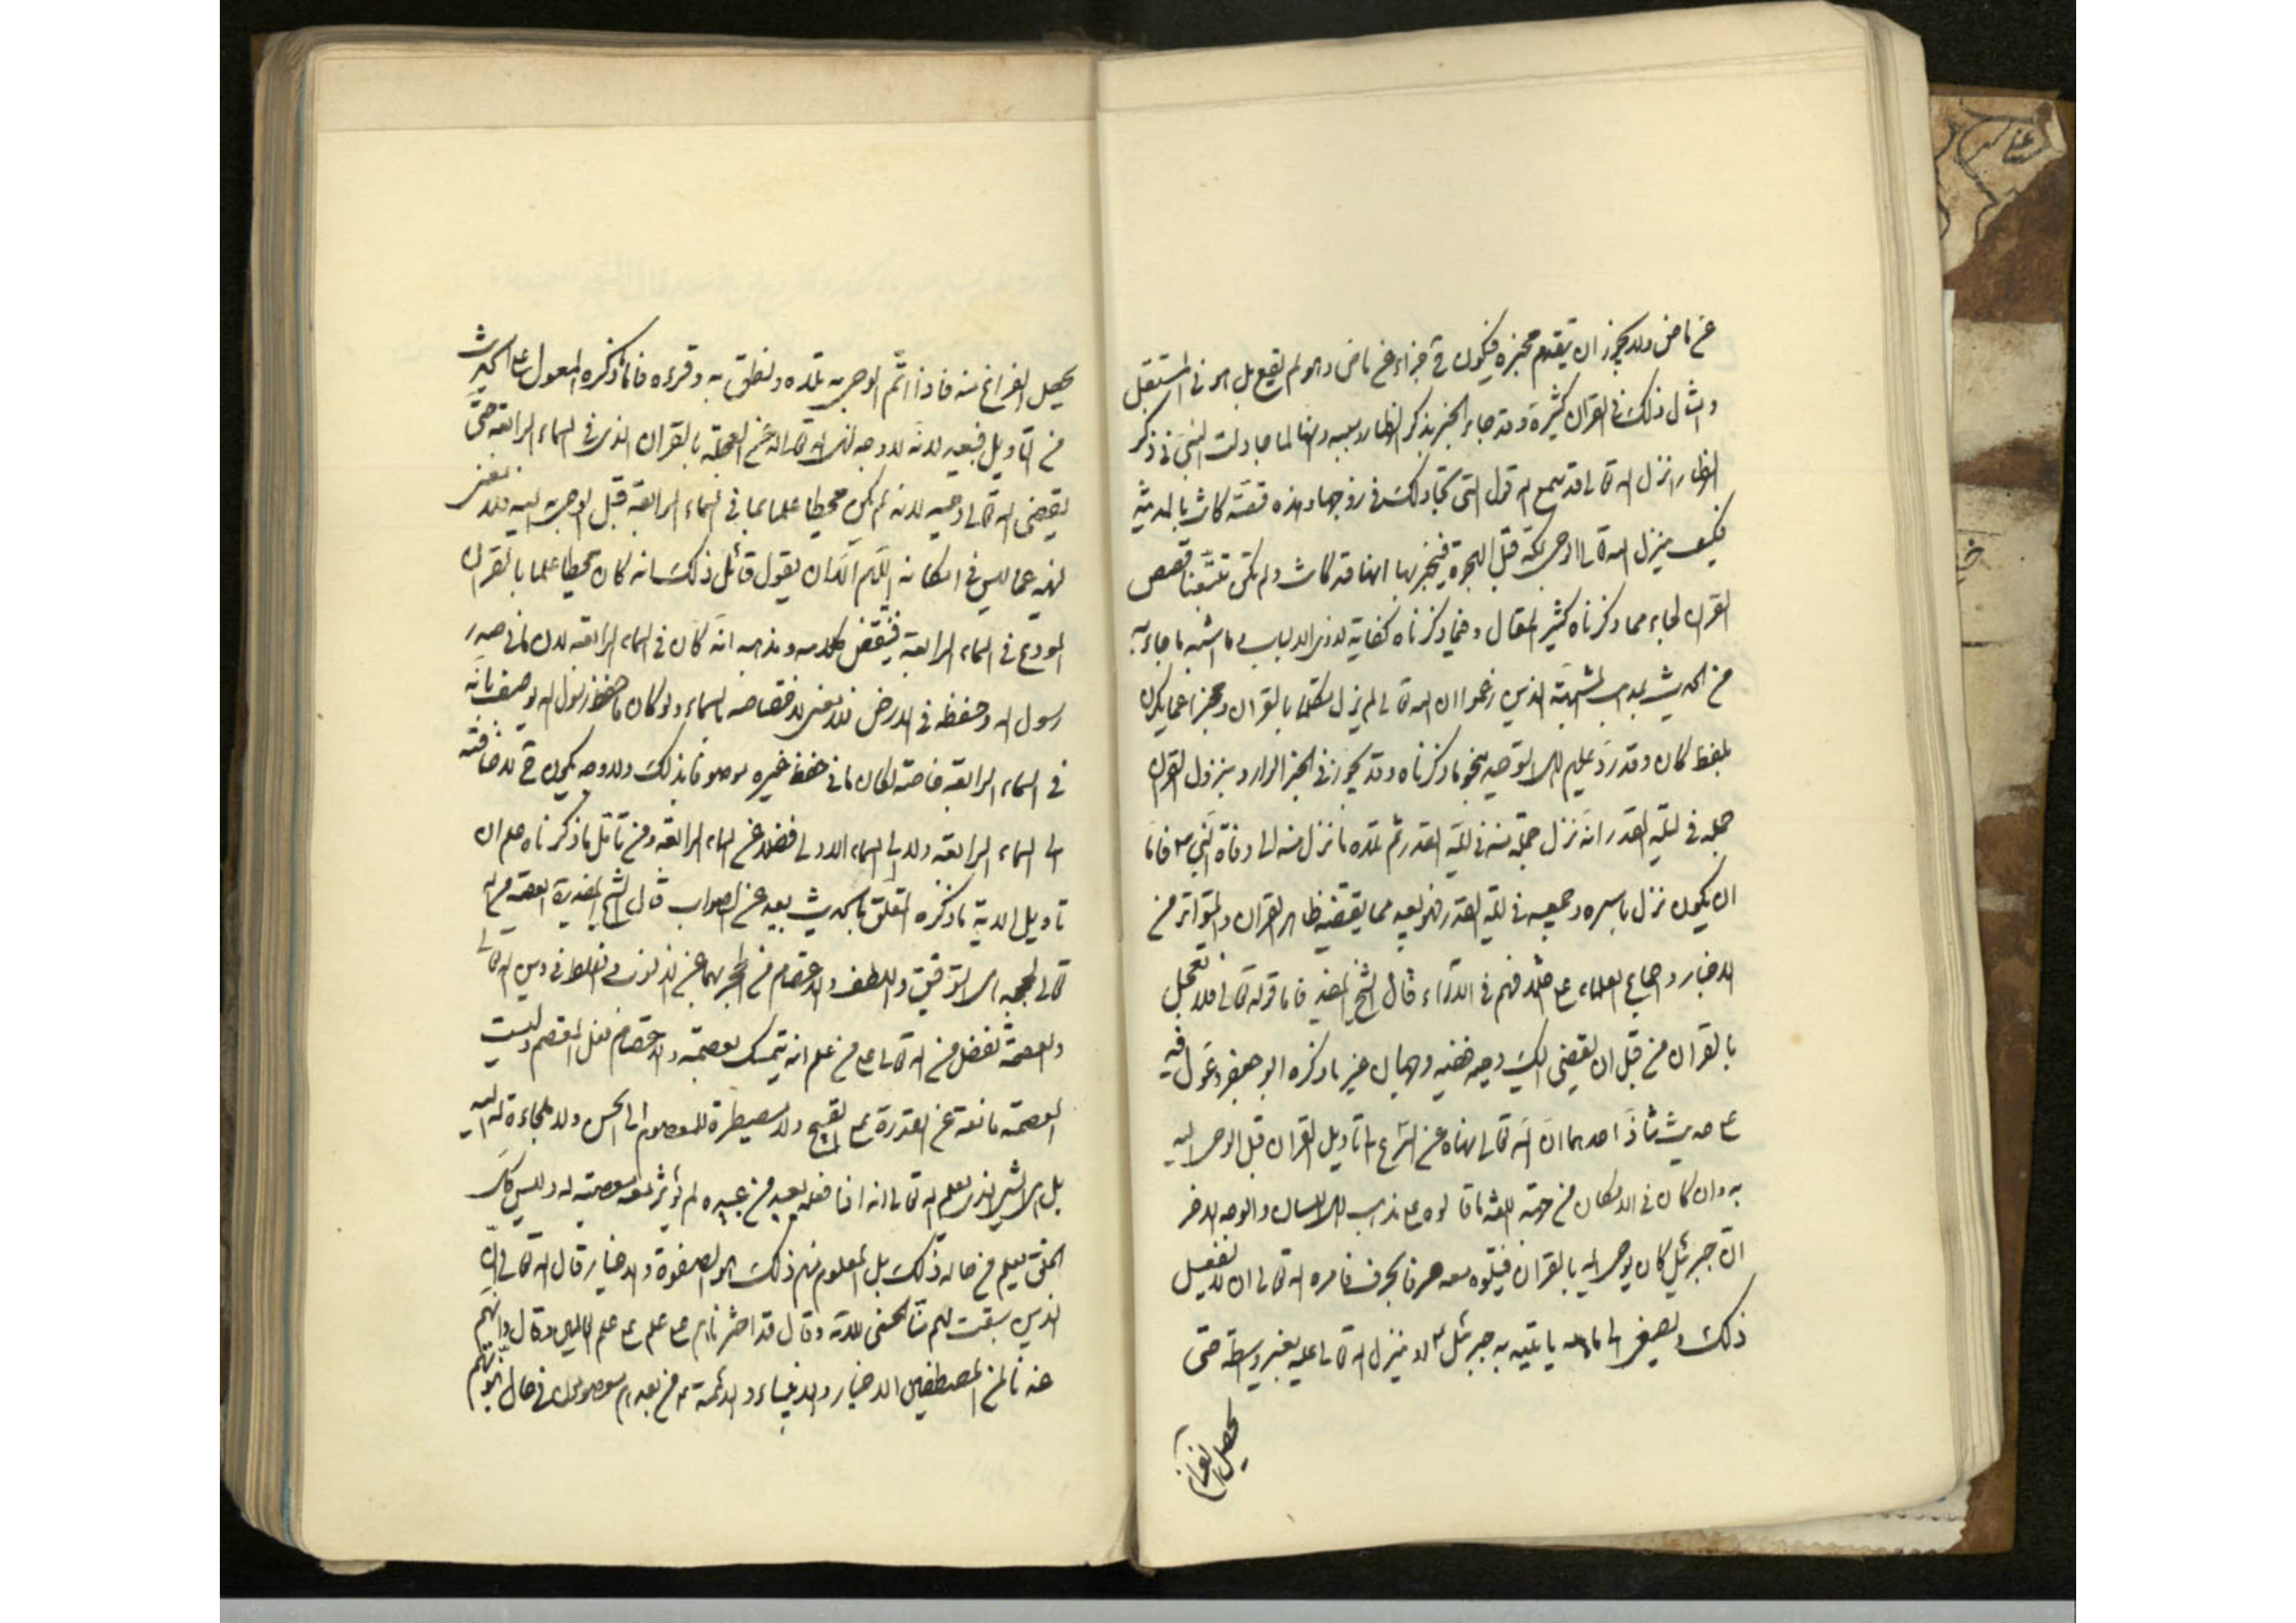 عن ماض ولا يجوز ان يتقدم مخبره فيكون ح جزاء عن ماض وهو لم يقع بل هو في المستقبل
وامثال ذلك في القران كثيرة وقد جاء الخبر بذكر الظهار وسببه وانها لما جادلت النبي في ذكر
الظهار انزل الله تعالى قد سمع الله قول التي تجادلك في زوجها وهذه قصة كانت بالمدينة
فكيف ينزل الله تعالى الوحي بمكة قبل الهجرة فيخبر بها انها قد كانت ولم تكن ولو تتبعنا قصص
القران لجاء مما ذكرناه كثير المقال وفيما ذكرناه كفاية لذوي الالباب وما اشبه ما جاء به
من الحديث بمذهب المشبهة الذين زعموا ان الله تعالى لم يزل متكلما بالقران ومخبرا عما يكون
بلفظ كان وقد رد عليهم اهل التوحيد بنحو ما ذكرناه وقد يجوز في الخبر الوارد بنزول القران
جملة في ليلة القدر انه نزل جملة منه في ليلة القدر ثم تلاه ما نزل منه الى وفاة النبي ص فاما
ان يكون نزل باسره وجميعه في ليلة القدر فهو بعيد مما يقتضيه ظاهر القران والمتواتر من
الاخبار واجماع العلماء على اختلافهم في الاراء قال الشيخ المفيد فاما قوله تعالى فلا تعجل
بالقران من قبل ان يقضى اليك وحيه ففيه وجهان غير ما ذكره ابو جعفر وعول فيه
على حديث شاذ احدهما ان الله تعالى نهاه عن التسرع الى تاويل القران قبل الوحي اليه
به وان كان في الامكان من جهة اللغة ما قالوه على مذهب اهل اللسان والوجه الاخر
ان جبرئيل كان يوحي اليه بالقران فيتلوه معه حرفا بحرف فامره الله تعالى ان لا يفعل
ذلك ويصغي الى ما يأتيه به جبرئيل ع او ينزل الله تعالى عليه بغير واسطة حتى
يحصل الفراغ
يحصل الفراغ منه فاذا اتم الوحي به تلاه ونطق به وقرءه فاما ذكره المعول على الحديث
من التاويل فبعيد لانه لا وجه لنهي الله تعالى له عن العجلة بالقران الذي في السماء الرابعة حتى
يقضى اليه تعالى وحيه لانه لم يكن محيطا علما بما في السماء الرابعة قبل الوحي به اليه فلا معنى
لنهيه عما ليس في امكانه اللهم الا ان يقول قائل ذلك انه كان محيطا علما بالقران
المودع في السماء الرابعة فينتقض كلامه ومذهبه انه كان في السماء الرابعة لان ما في صدر
رسول الله وحفظه في الارض فلا معنى لاختصاصه بالسماء ولو كان ما في حفظ رسول الله يوصف بانه
في السماء الرابعة خاصة لكان ما في حفظ غيره موصوفا بذلك ولا وجه يكون ح لاضافته
الى السماء الرابعة ولا الى السماء الاولى فضلا عن السماء الرابعة ومن تامل ما ذكرناه علم ان
تاويل الاية ما ذكره المتعلق بالحديث بعيد عن الصواب قال الشيخ المفيد العصمة من الله
تعالى لحججه هي التوفيق واللطف والاعتصام من الحجج بهما عن الذنوب والغلط في دين الله تعالى
والعصمة تفضل من الله تعالى على من علم انه يتمسك بعصمته والاعتصام فعل المعتصم وليست
العصمة مانعة عن القدرة على القبيح ولا مضطرة للمعصوم الى الحسن ولا ملجاءة له اليه
بل هي الشيء الذي يعلم الله تعالى انه اذا فعله بعبد من عبيده لم يؤثر معه معصيته له وليس كل
الخلق يعلم من حاله ذلك بل المعلوم منهم ذلك هو الصفوة والاخيار قال الله تعالى ان
الذين سبقت لهم منا الحسنى الاية وقال قد اخترناهم على علم على علم العالمين وقال وانهم
عندنا لمن المصطفين الاخيار والانبياء والائمة ع من بعدهم معصومون في حال نبوتهم